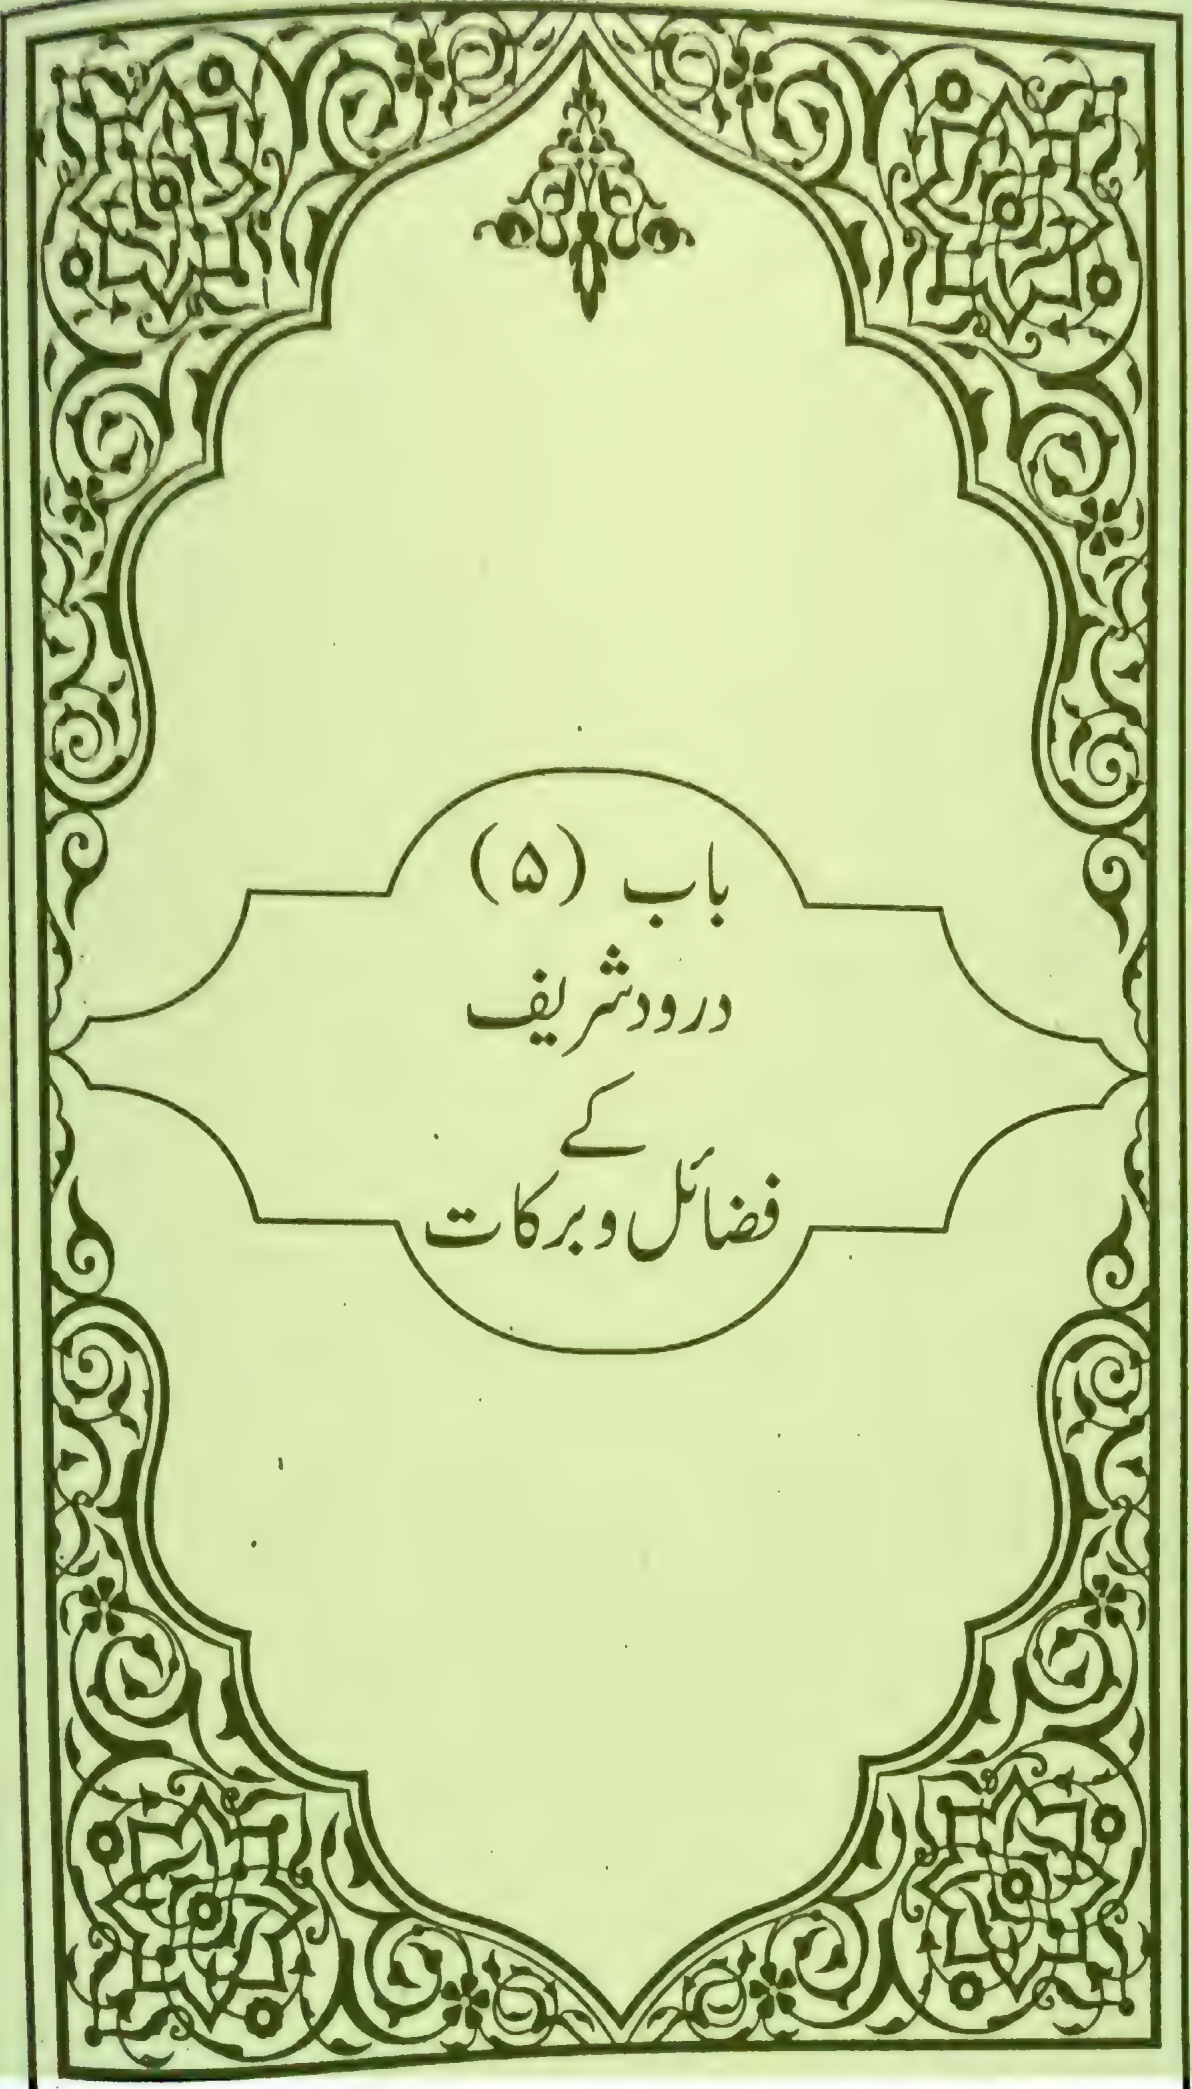 باب (۵)
درود شریف
کے
فضائل و برکات